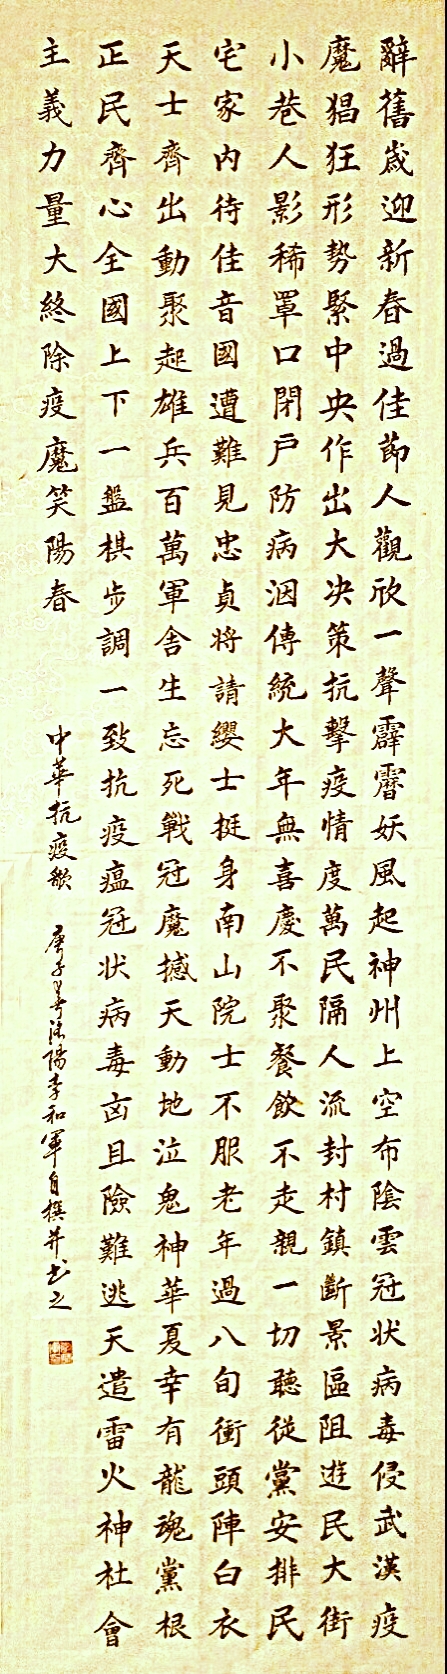 辭舊歲迎新春過佳節人觀欣一聲霹靂妖風起神州上空布陰雲冠状病毒侵武漢疫
魔猖狂形勢緊中央作出大决策抗擊疫情度萬民隔人流封村鎮斷景區阻遊民大街
小巷人影稀罩口閉户防病洇傳統大年無喜慶不聚餐飲不走親一切聽從黨安排民
宅家内待佳音國遭難見忠貞将請纓士挺身南山院士不服老年過八旬衝頭陣白衣
天士齊出動聚起雄兵百萬軍舍生忘死戰冠魔撼天動地泣鬼神華夏幸有龍魂黨根
正民齊心全國上下一盤棋步調一致抗疫瘟冠状病毒凶且險難逃天遣雷火神社會
主義力量大終除疫魔笑陽春
中華抗疫歌 庚子春沭陽李和軍自撰并书之